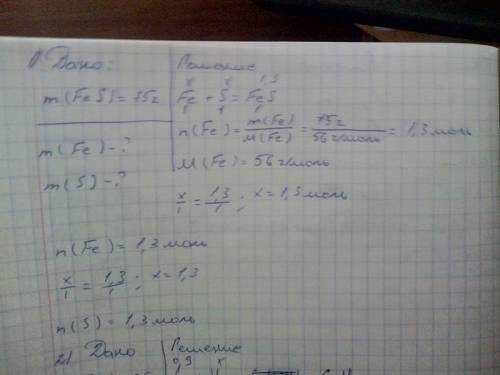 1) Дано:
m(FeS)=75г
m(Fe)-?
m(S)-?
Решение
x x 1,3
Fe + S = FeS
1 1 1
n(Fe) = m(Fe)/M(Fe) = 75г/56 г/моль = 1,3 моль
M(Fe) = 56 г/моль
x/1 = 1,3/1 ; x = 1,3 моль
n(Fe) = 1,3 моль
x/1 = 1,3/1 ; x = 1,3
n(S) = 1,3 моль
2) Дано
Решение
0,9 x